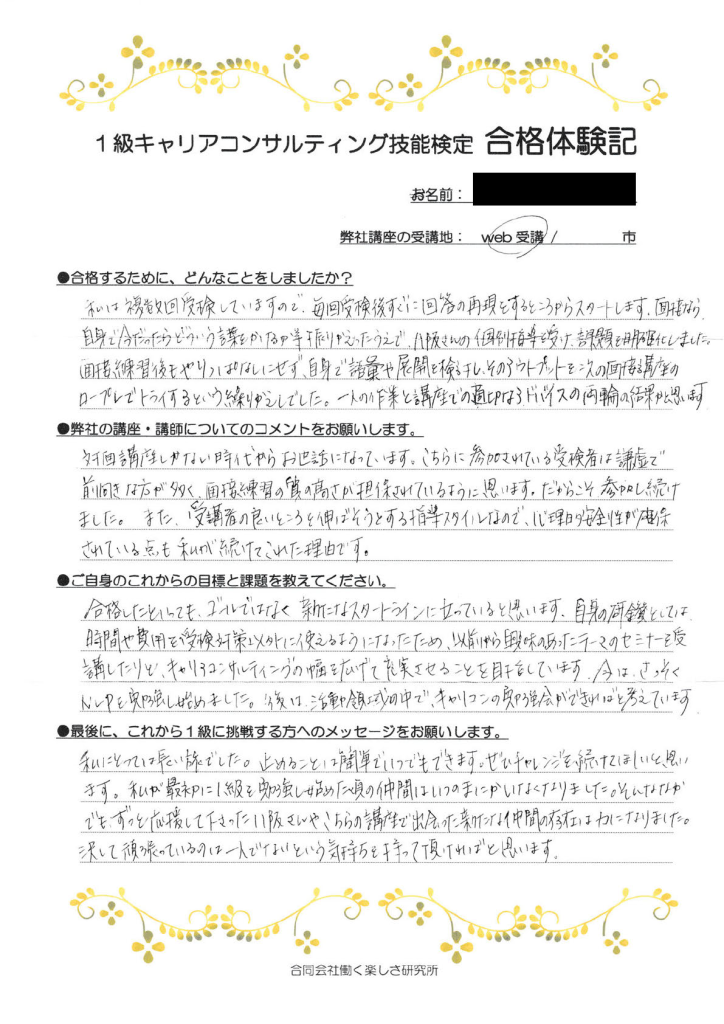 1級キャリアコンサルティング技能検定 合格体験記
お名前：
弊社講座の受講地： web受講 / 市
●合格するために、どんなことをしましたか？
私は複数回受検していますので、毎回受検後すぐに回答の再現をするところからスタートします。面接なら
自身で今だったらどういう言葉をかけるか等ふりかえったうえで、八阪さんの個別指導を受け、課題を明確にしました。
面接練習後もやりっぱなしにせず、自身で語彙や展開を検討し、そのアウトプットを次の面接講座の
ロープレでトライするという繰りかえしでした。一人の作業と講座での適切なアドバイスの両輪の結果かと思います
●弊社の講座・講師についてのコメントをお願いします。
対面講座しかない時代からお世話になっています。こちらに参加されている受検者は謙虚で
前向きな方が多く、面接練習の質の高さが担保されているように思います。だからこそ参加し続け
ました。また、受講者の良いところを伸ばそうとする指導スタイルなので、心理的安全性が確保
されている点も私が続けてこれた理由です。
●ご自身のこれからの目標と課題を教えてください。
合格したといっても、ゴールではなく新たなスタートラインに立っていると思います。自身の研鑽としては
時間や費用を受検対策以外に使えるようになったため、以前から興味のあったテーマのセミナーを受
講したりと、キャリアコンサルティングの幅を広げて充実させることを目指しています。今は、さっそく
NLPを勉強し始めました。今後は、活動領域の中で、キャリコンの勉強会ができればと考えています
●最後に、これから1級に挑戦する方へのメッセージをお願いします。
私にとっては長い旅でした。止めることは簡単でいつでもできます。ぜひチャレンジを続けてほしいと思い
ます。私が最初に1級を勉強し始めた頃の仲間はいつのまにかいなくなりました。そんななか
でも、ずっと応援して下さった八阪さんやこちらの講座で出会った新たな仲間の存在は力になりました。
決して頑張っているのは一人でないという気持ちを持って頂ければと思います。
合同会社働く楽しさ研究所